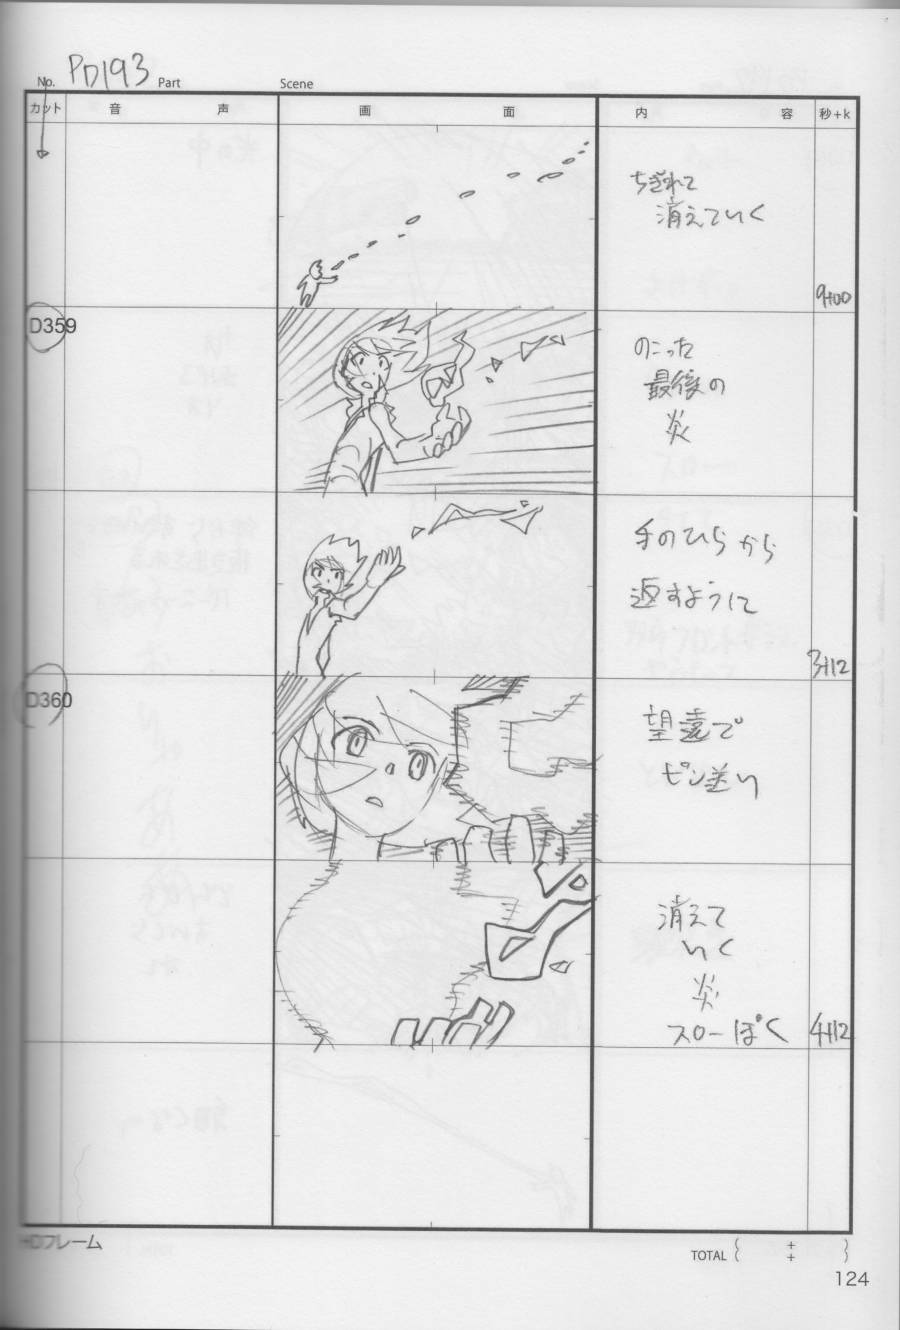 No. PD193 Part Scene
カット 音 声 画 面 内 容 秒+k
ちぎれて
消えていく
9+00
D359
のこった
最後の
炎
手のひらから
返すように
3+12
D360
望遠で
ピン送り
消えて
いく
炎
スローぽく
4+12
HDフレーム
TOTAL { + + }
124